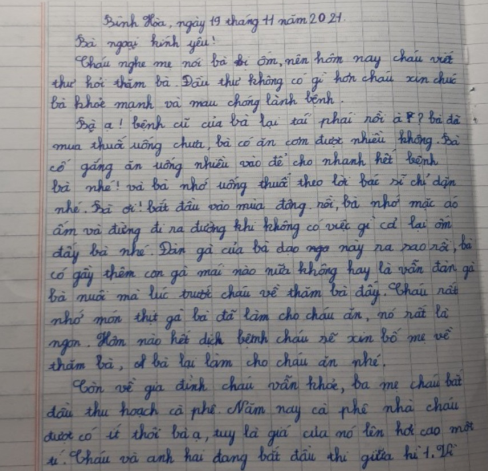 Bình Hòa, ngày 19 tháng 11 năm 2021.
Bà ngoại kính yêu!
Cháu nghe mẹ nói bà bị ốm, nên hôm nay cháu viết
thư hỏi thăm bà. Đầu thư không có gì hơn cháu xin chúc
bà khỏe mạnh và mau chóng lành bệnh.
Bà ạ! bệnh cũ của bà lại tái phái rồi à? bà đã
mua thuốc uống chưa, bà có ăn cơm được nhiều không. Bà
cố gắng ăn uống nhiều vào để cho nhanh hết bệnh
bà nhé! và bà nhớ uống thuốc theo lời bác sĩ chỉ dẫn
nhé. Bà ơi! bắt đầu vào mùa đông rồi, bà nhớ mặc áo
ấm và đừng đi ra đường khi không có việc gì cả lại ốm
đấy bà nhé. Đàn gà của bà dạo này ra sao rồi, bà
có gây thêm con gà mái nào nữa không hay là vẫn đàn gà
bà nuôi mà lúc trước cháu về thăm bà đấy. Cháu rất
nhớ món thịt gà bà đã làm cho cháu ăn, nó rất là
ngon. Hôm nào hết dịch bệnh cháu sẽ xin bố mẹ về
thăm bà, bà lại làm cho cháu ăn nhé.
Còn về gia đình cháu vẫn khỏe, ba mẹ cháu bắt
đầu thu hoạch cà phê. Năm nay cà phê nhà cháu
được có ít thôi bà ạ, tuy là giá của nó lên hơi cao một
tí. Cháu và anh hai đang bắt đầu thi giữa kì 1,